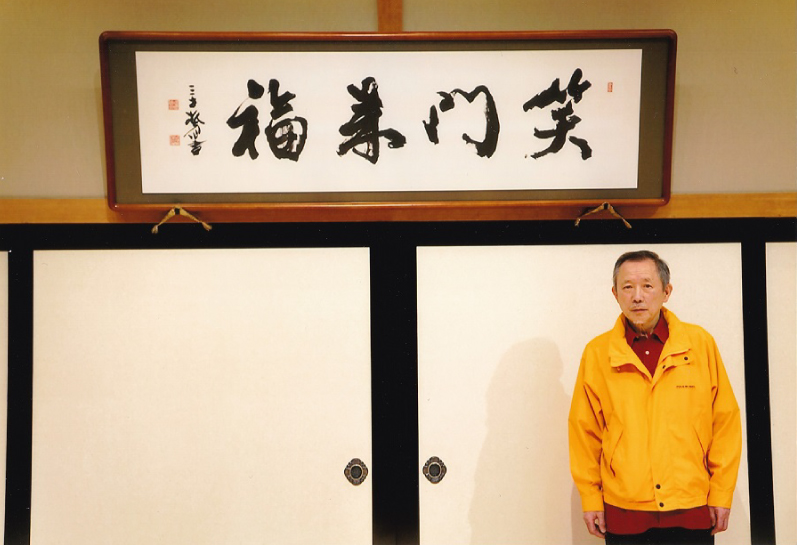 笑門来福